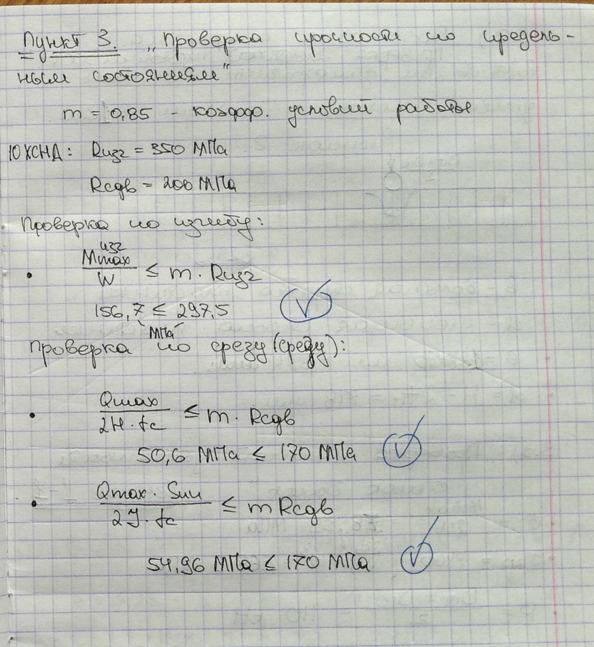 Пункт 3. „Проверка прочности по предель-
ным состояниям"
m = 0,85 - коэфф. условий работы
10ХСНД: Rизг = 350 МПа
Rсдв = 200 МПа
Проверка по изгибу:
• Mmax изг / W ≤ m · Rизг
156,7 ≤ 297,5
(МПа)
Проверка по срезу (среду):
• Qmax / 2H · tc ≤ m · Rсдв
50,6 МПа ≤ 170 МПа
• Qmax · Sпч / 2J · tc ≤ m Rсдв
54,96 МПа ≤ 170 МПа